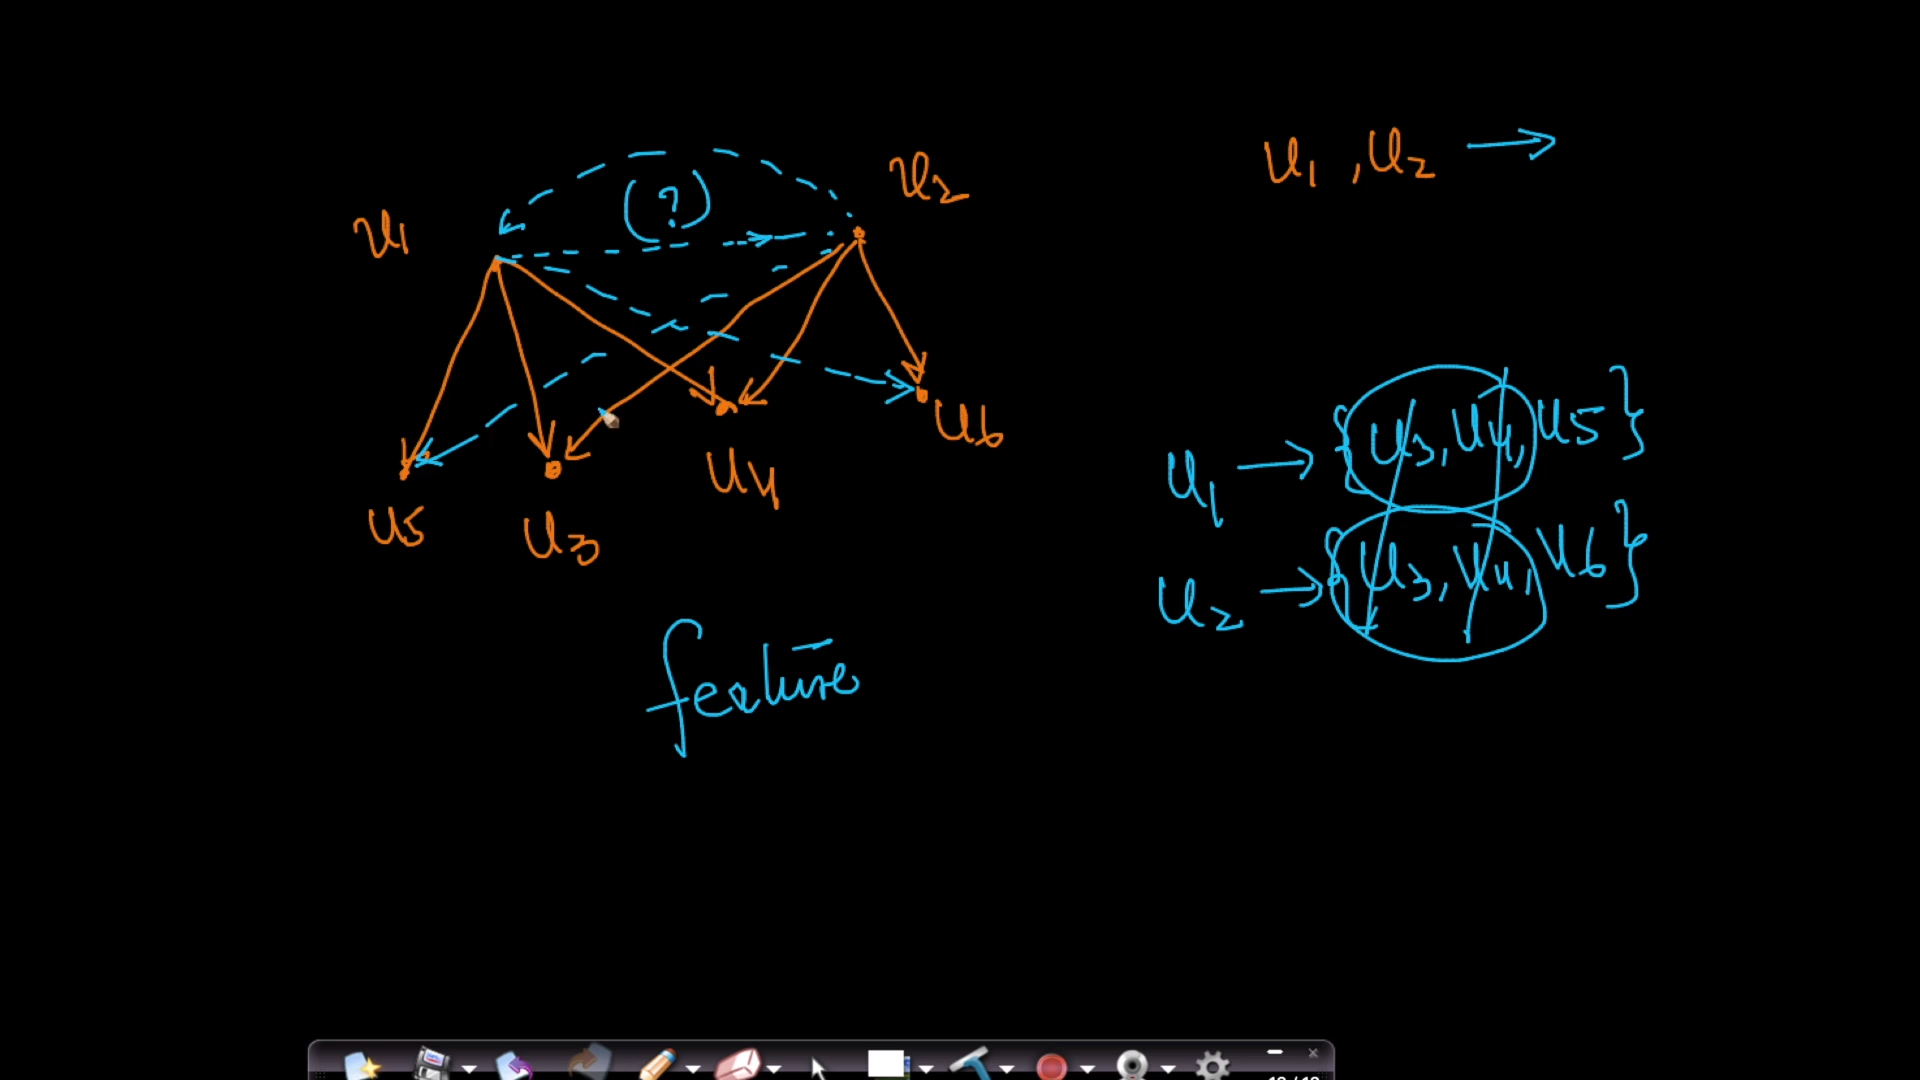 u1
(?)
u2
u5
u3
u4
u6
feature
u1, u2 →
u1 → {u3, u4, u5}
u2 → {u3, u4, u6}